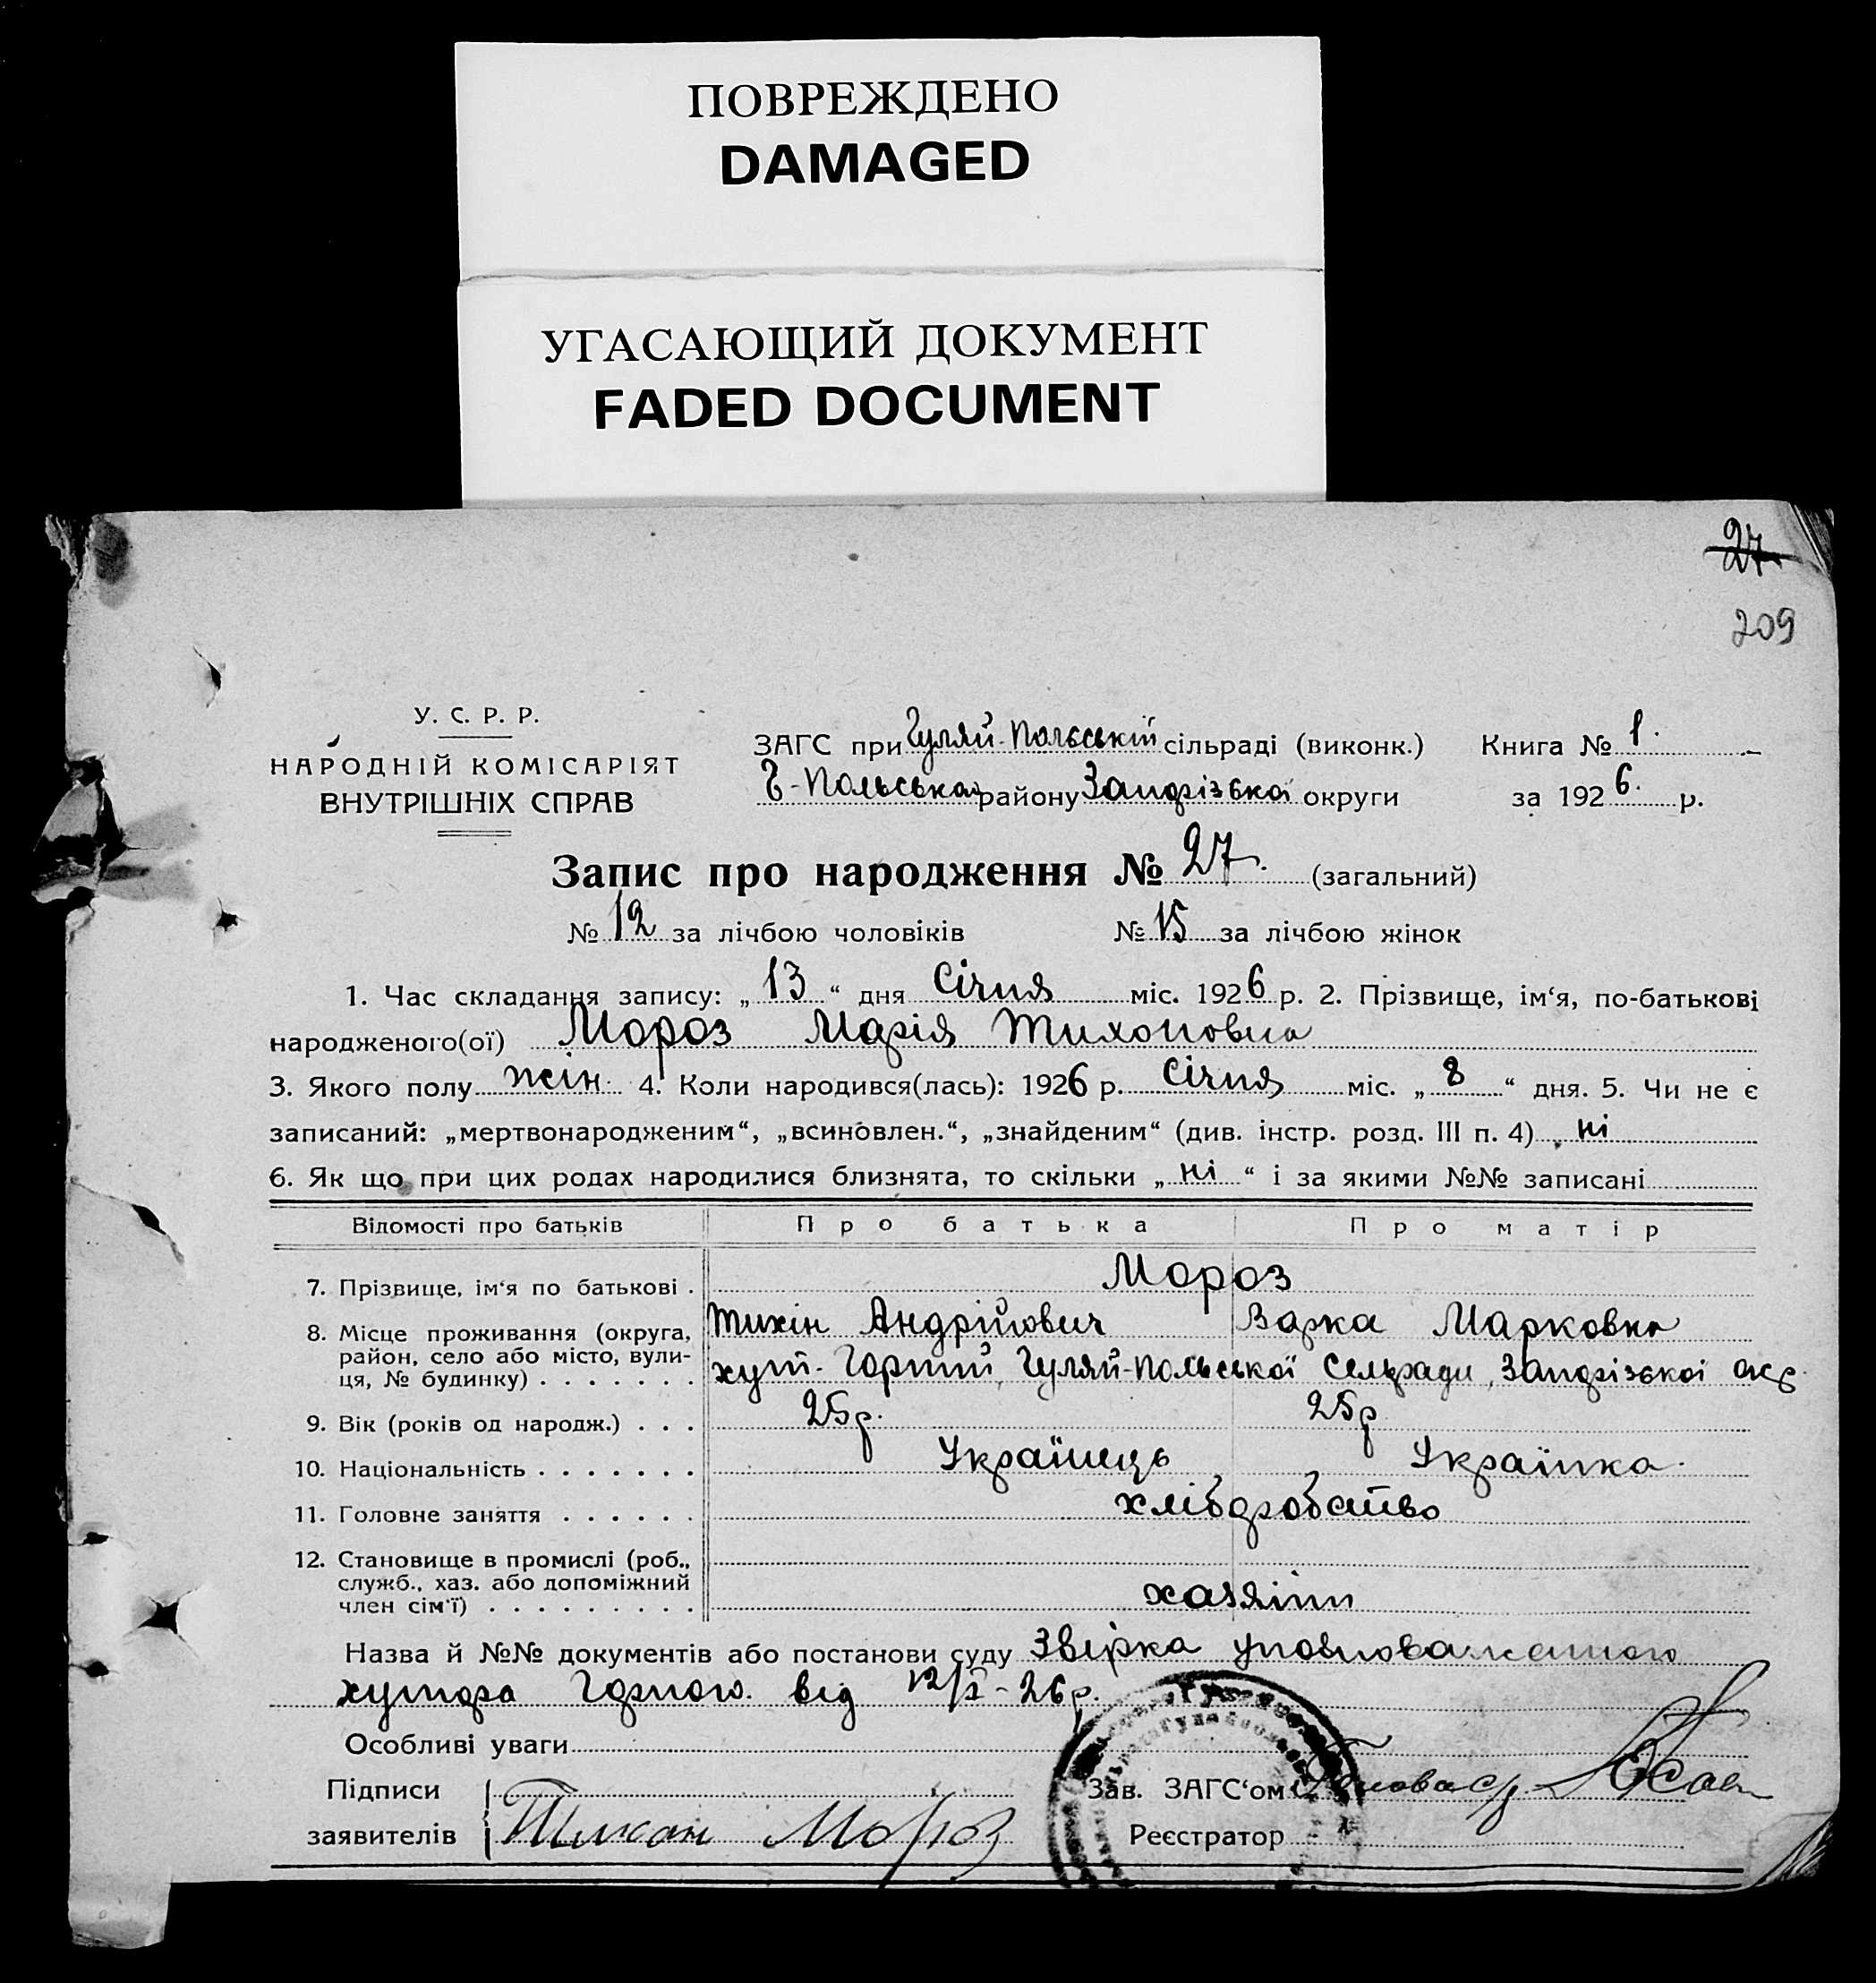 ПОВРЕЖДЕНО
DAMAGED
УГАСАЮЩИЙ ДОКУМЕНТ
FADED DOCUMENT
27
209
У. С. Р. Р.
НАРОДНІЙ КОМІСАРІЯТ
ВНУТРІШНІХ СПРАВ
ЗАГС при Гуляй-Польській сільраді (виконк.) Книга № 1.
Г-Польського району Запорізької округи за 1926. р.
Запис про народження № 27. (загальний)
№ 12 за лічбою чоловіків № 15 за лічбою жінок
1. Час складання запису: „13“ дня Січня міс. 1926 р. 2. Прізвище, ім‘я, по-батькові
народженого(ої) Мороз Марія Тихоновна
3. Якого полу жін. 4. Коли народився(лась): 1926 р. Січня міс. „8“ дня. 5. Чи не є
записаний: „мертвонародженим“, „всиновлен.“, „знайденим“ (див. інстр. розд. III п. 4) ні
6. Як що при цих родах народилися близнята, то скільки „ні“ і за якими №№ записані
Відомості про батьків Про батька Про матір
7. Прізвище, ім‘я по батькові . Мороз
Тихін Андрійович Варка Марковна
8. Місце проживання (округа,
район, село або місто, вули-
ця, № будинку) . . . . . . . хут. Гуляй-Польської Сельради, Запорізької окр.
9. Вік (років од народж.) . . . 25р. 25р
10. Національність . . . . . . . Українець Українка.
11. Головне заняття . . . . . . хліборобство
12. Становище в промислі (роб.,
служб., хаз. або допоміжний
член сім‘ї) . . . . . . . . . хазяїни
Назва й №№ документів або постанови суду Звірка уповноваженого
хутора Горного. від 12/I-26р.
Особливі уваги
Підписи
заявителів Тихон Мороз
Зав. ЗАГС‘ом
Реєстратор